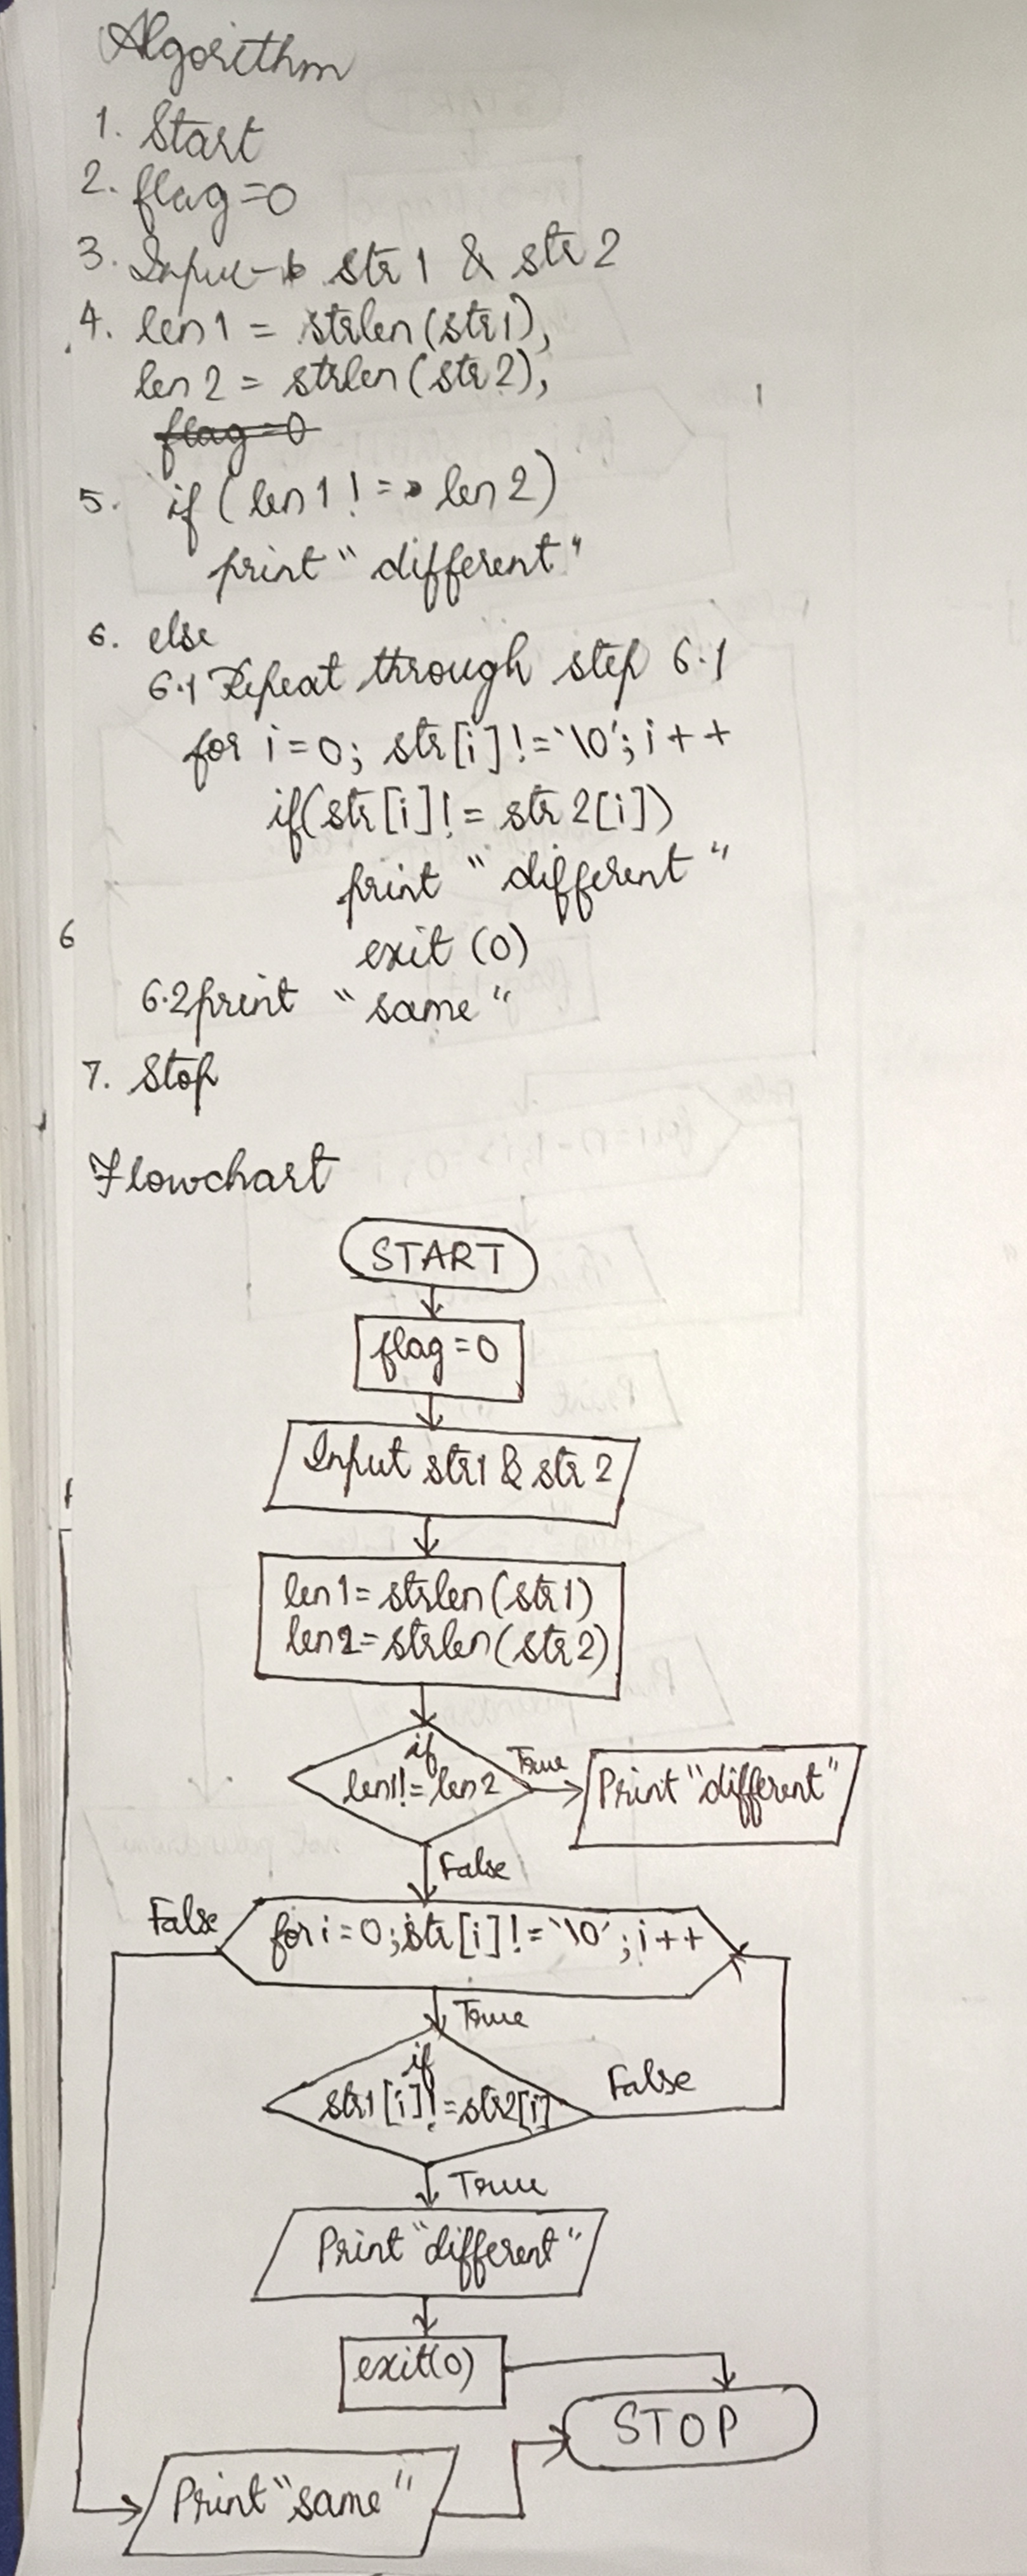 Algorithm
1. Start
2. flag=0
3. Input str1 & str2
4. len1 = strlen(str1),
len2 = strlen(str2),
flag=0
5. if (len1 != len2)
print "different"
6. else
6.1 Repeat through step 6.1
for i=0; str[i]!='\0'; i++
if(str[i]!= str2[i])
print "different"
exit (0)
6
6.2 print "same"
7. Stop
Flowchart
START
flag=0
Input str1 & str2
len1=strlen(str1)
len2=strlen(str2)
if
len1!=len2
True
Print "different"
False
False
for i=0;str[i]!='\0';i++
True
if
str1[i]!=str2[i]
False
True
Print "different"
exit(0)
STOP
Print "same"